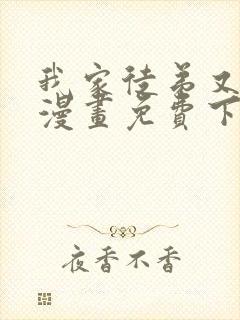 我家徒弟又
漫畫免費下
夜香不香